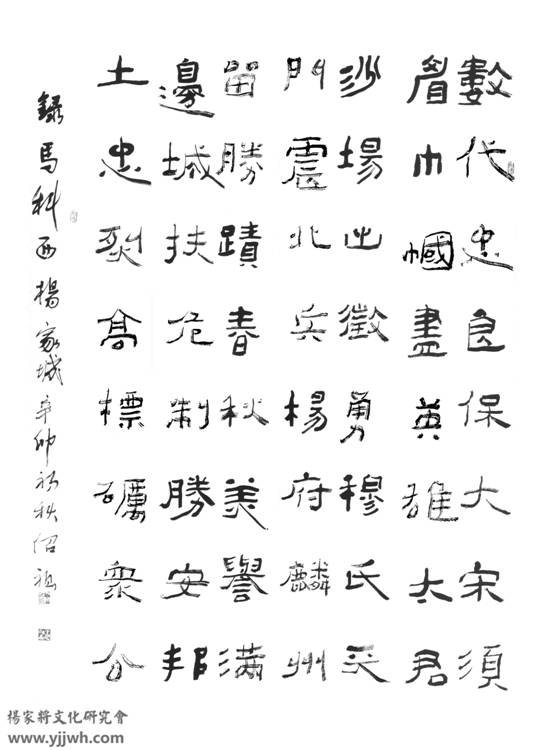 數代忠良保大宋須
眉巾幗盡英雄太君
沙場出徵勇穆氏天
門震北兵楊府麟州
留勝蹟春秋美譽滿
邊城扶危制勝安邦
土忠烈高標礪眾公
錄馬科西楊家城辛卯初秋紹祖
楊家將文化研究會
www.yjjwh.com